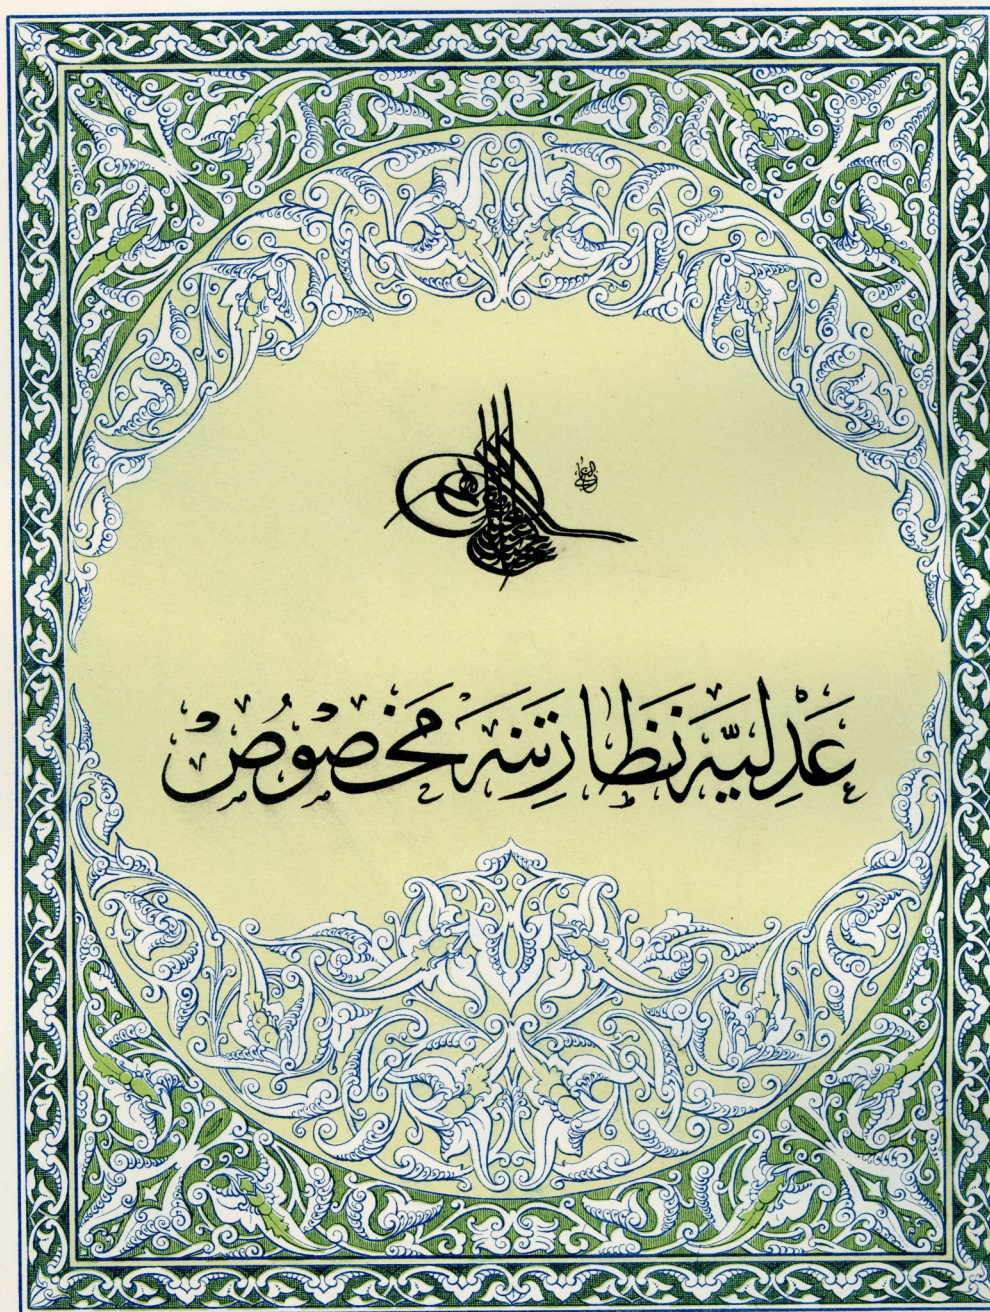 عَدْلِيَّه نَظَارَتِنَه مَخْصُوصْ